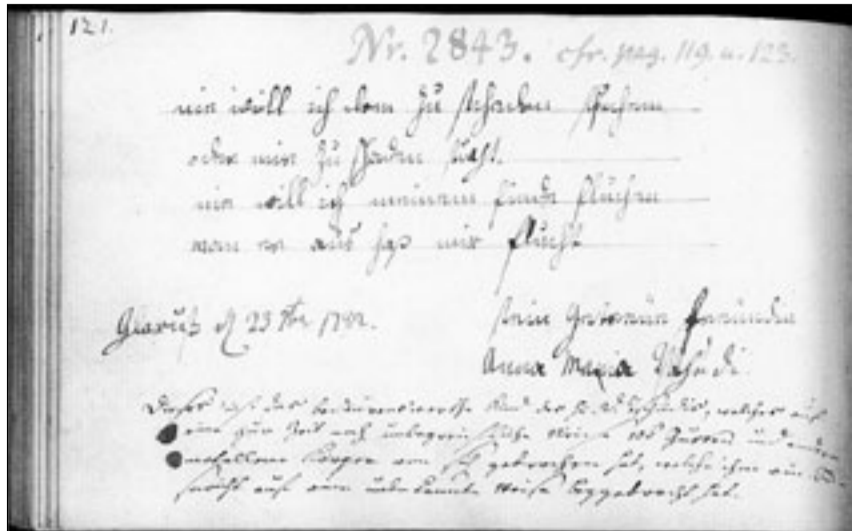 121.
Nr. 2843. cfr. pag. 119. u. 123.
nie will ich dem zu schaden suchen
oder mir zu schaden sucht.
nie will ich meinem finde fluchen
wan er aus haß mir flucht
Glaruß d 23 1782.
dein getreüe freündin
Anna Maria Tschudi
Dieses ist das bedaurenswerthe Kind des Hr. D. Tschudis, welches auf
eine zur Zeit noch unbegreifliche Weise 106 Guffen und andere
metallene Körper von sich gebrochen hat, welche ihm ein
auf eine unbekannte Weise beygebracht hat.